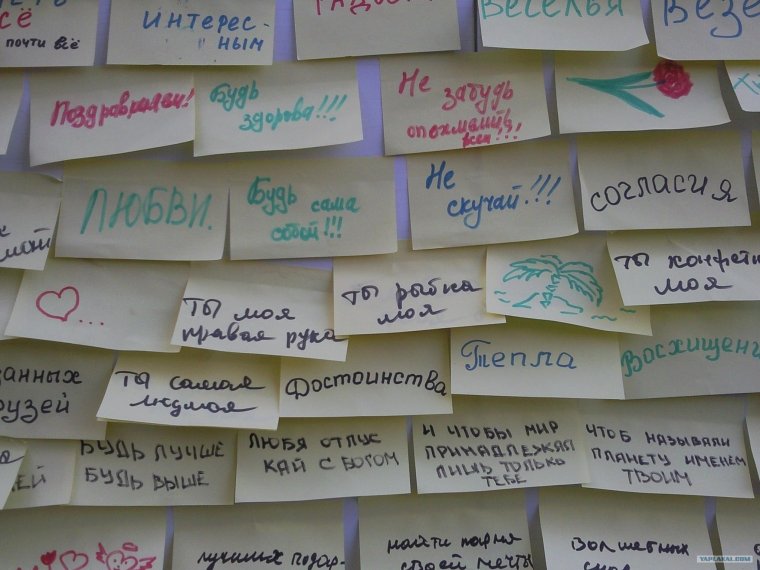 сё
почти всё
ИНТЕРЕС-
НЫМ
ВЕСЕЛЬЯ
Поздравляем!
Будь
здорова!!!
Не
забудь
опохмелиться
ЛЮБВИ.
Будь сама
собой!!!
Не
скучай!!!
СОГЛАСИЯ
...
ТЫ МОЯ
правая рука
ТЫ рыбка
моя
ТЫ конфетка
моя
ТЫ самая
Достоинства
Тепла
Восхищени
БУДЬ ЛУЧШЕ
БУДЬ ВЫШЕ
ЛЮБЯ ОТПУС
КАЙ С БОГОМ
И ЧТОБЫ МИР
ПРИНАДЛЕЖАЛ
ЛИШЬ ТОЛЬКО
ТЕБЕ
ЧТОБ НАЗЫВАЛИ
ПЛАНЕТУ ИМЕНЕМ
ТВОИМ
ЕЙ
лучших подар-
найти парня
своей мечты
волшебных
снов
YAPLAKAL.COM